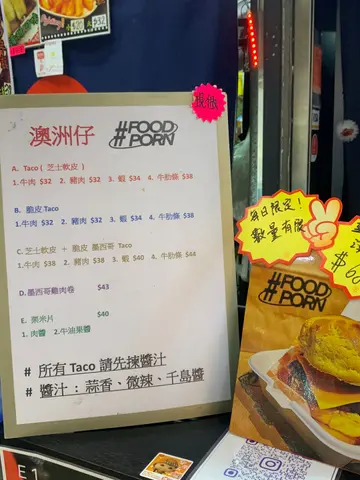 $32
澳洲仔
#FOOD PORN
現做
A. Taco ( 芝士軟皮 )
1.牛肉 $32 2. 豬肉 $32 3. 蝦 $34 4. 牛肋條 $38
B. 脆皮 Taco
1.牛肉 $32 2. 豬肉 $32 3. 蝦 $34 4. 牛肋條 $38
C.芝士軟皮 + 脆皮 墨西哥 Taco
1.牛肉 $38 2. 豬肉 $38 3. 蝦 $40 4. 牛肋條 $44
D.墨西哥雞肉卷 $43
E. 粟米片 $40
1. 肉醬 2.牛油果醬
# 所有 Taco 請先揀醬汁
# 醬汁 : 蒜香、微辣、千島醬
每日限定!
數量有限
#FOOD PORN
E1